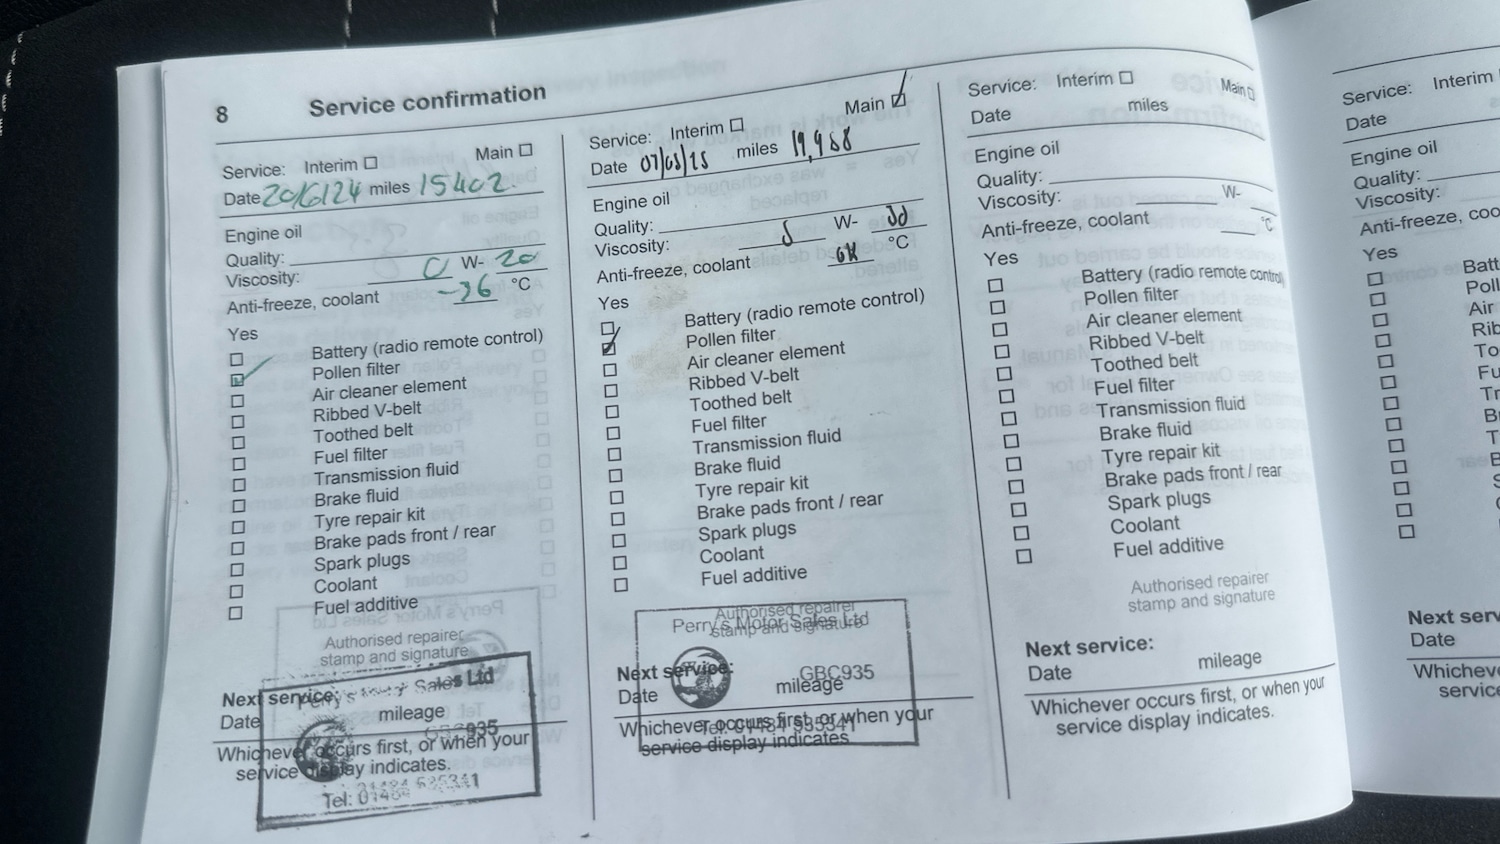 8 Service confirmation
Service: Interim Main
Date 20/6/24 miles 15402
Engine oil
Quality:
Viscosity: 0 W- 20
Anti-freeze, coolant -36 °C
Yes
Battery (radio remote control)
Pollen filter
Air cleaner element
Ribbed V-belt
Toothed belt
Fuel filter
Transmission fluid
Brake fluid
Tyre repair kit
Brake pads front / rear
Spark plugs
Coolant
Fuel additive
Authorised repairer
stamp and signature
Perry's Motor Sales Ltd
Next service:
Date mileage
935
Whichever occurs first, or when your
service display indicates.
Tel: 01484
Service: Interim Main
Date 07/05/25 miles 19,988
Engine oil
Quality:
Viscosity: W-
Anti-freeze, coolant OK °C
Yes
Battery (radio remote control)
Pollen filter
Air cleaner element
Ribbed V-belt
Toothed belt
Fuel filter
Transmission fluid
Brake fluid
Tyre repair kit
Brake pads front / rear
Spark plugs
Coolant
Fuel additive
Authorised repairer
stamp and signature
Perry's Motor Sales Ltd
GBC935
Next service:
Date mileage
Whichever occurs first, or when your
service display indicates.
Tel: 01484
Service: Interim Main
Date miles
Engine oil
Quality:
Viscosity: W-
Anti-freeze, coolant °C
Yes
Battery (radio remote control)
Pollen filter
Air cleaner element
Ribbed V-belt
Toothed belt
Fuel filter
Transmission fluid
Brake fluid
Tyre repair kit
Brake pads front / rear
Spark plugs
Coolant
Fuel additive
Authorised repairer
stamp and signature
Next service:
Date mileage
Whichever occurs first, or when your
service display indicates.
Service: Interim
Date
Engine oil
Quality:
Viscosity:
Anti-freeze, coo
Yes
Batt
Poll
Air
Rib
To
Fu
Tr
Br
T
B
S
Next serv
Date
Whicheve
service